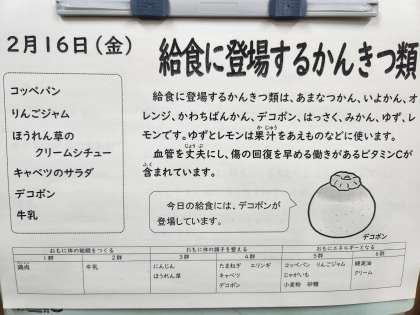 2月16日(金)
給食に登場するかんきつ類
コッペパン
りんごジャム
ほうれん草の
クリームシチュー
キャベツのサラダ
デコポン
牛乳
給食に登場するかんきつ類は、あまなつかん、いよかん、オ
レンジ、かわちばんかん、デコポン、はっさく、みかん、ゆず、レ
モンです。ゆずとレモンは果汁をあえものなどに使います。
かじゅう
血管を丈夫にし、傷の回復を早める働きがあるビタミンCが
じょうぶ
含まれています。
ふく
今日の給食には、デコポンが
登場しています。
デコポン
おもに体の組織をつくる おもに体の調子を整える おもにエネルギーとなる
1群 2群 3群 4群 5群 6群
鶏肉 牛乳 にんじん たまねぎ エリンギ コッペパン りんごジャム
ほうれん草 キャベツ じゃがいも クリーム
デコポン 小麦粉 砂糖